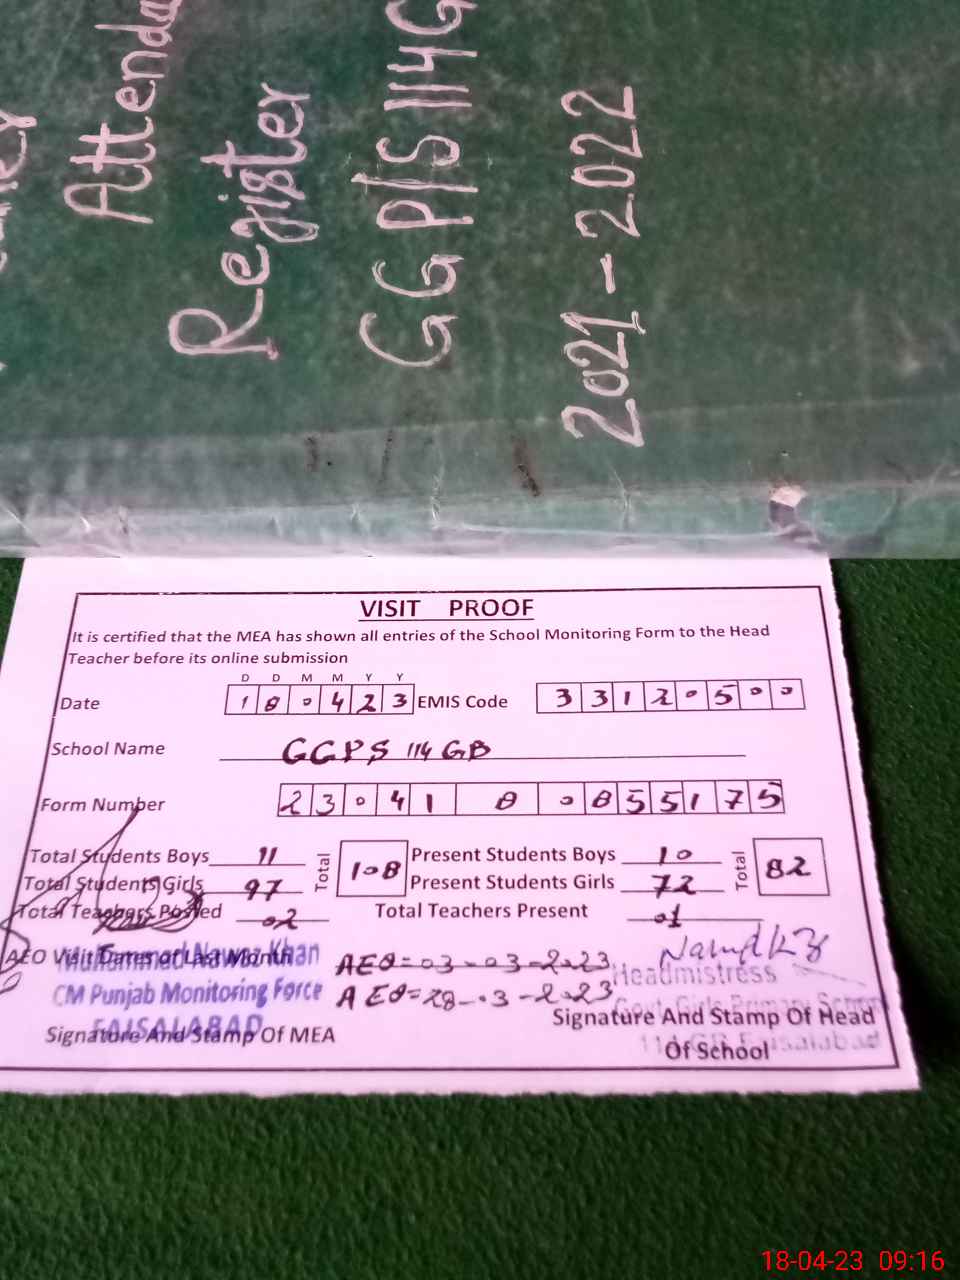 Attenda
Register
G G P/S 114 G
2021-2022
VISIT PROOF
It is certified that the MEA has shown all entries of the School Monitoring Form to the Head
Teacher before its online submission
D D M M Y Y
Date 180423 EMIS Code 33120500
School Name GGPS 114 GB
Form Number 23041 8 0855175
Total Students Boys 11 Total 108 Present Students Boys 10 Total 82
Total Students Girls 97 Present Students Girls 72
Total Teachers Posted 02 Total Teachers Present 01
AEO Visit Dates of Last Month AEO=03-03-2023
AEO=28-03-2023
Muhammad Nawaz Khan
CM Punjab Monitoring Force
FAISALABAD
Signature And Stamp Of MEA
Headmistress
Govt. Girls Primary School
114 GB Faisalabad
Signature And Stamp Of Head
Of School
18-04-23 09:16